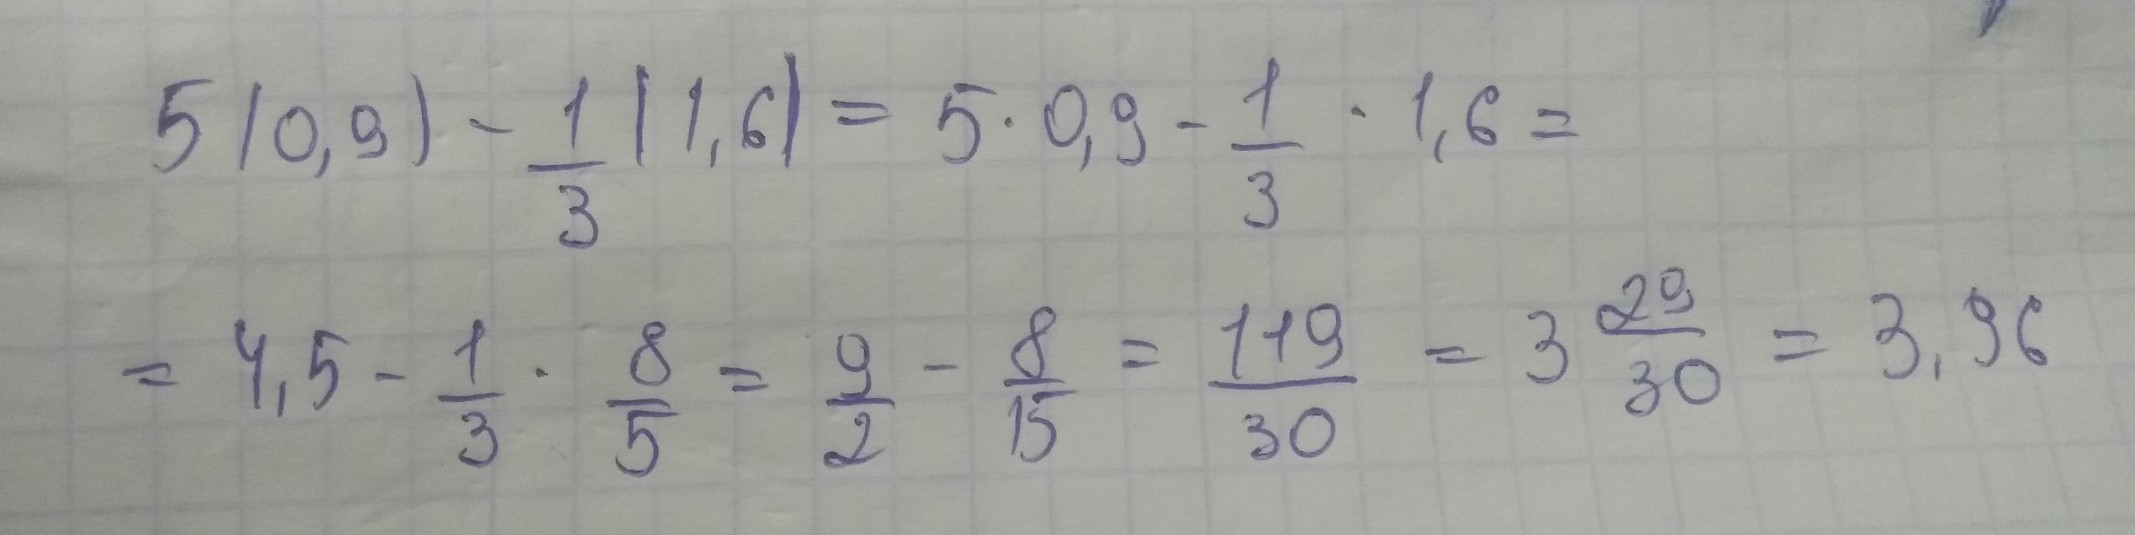 5|0,9| - 1/3 |1,6| = 5·0,9 - 1/3 · 1,6 =
= 4,5 - 1/3 · 8/5 = 9/2 - 8/15 = 119/30 = 3 29/30 = 3,96